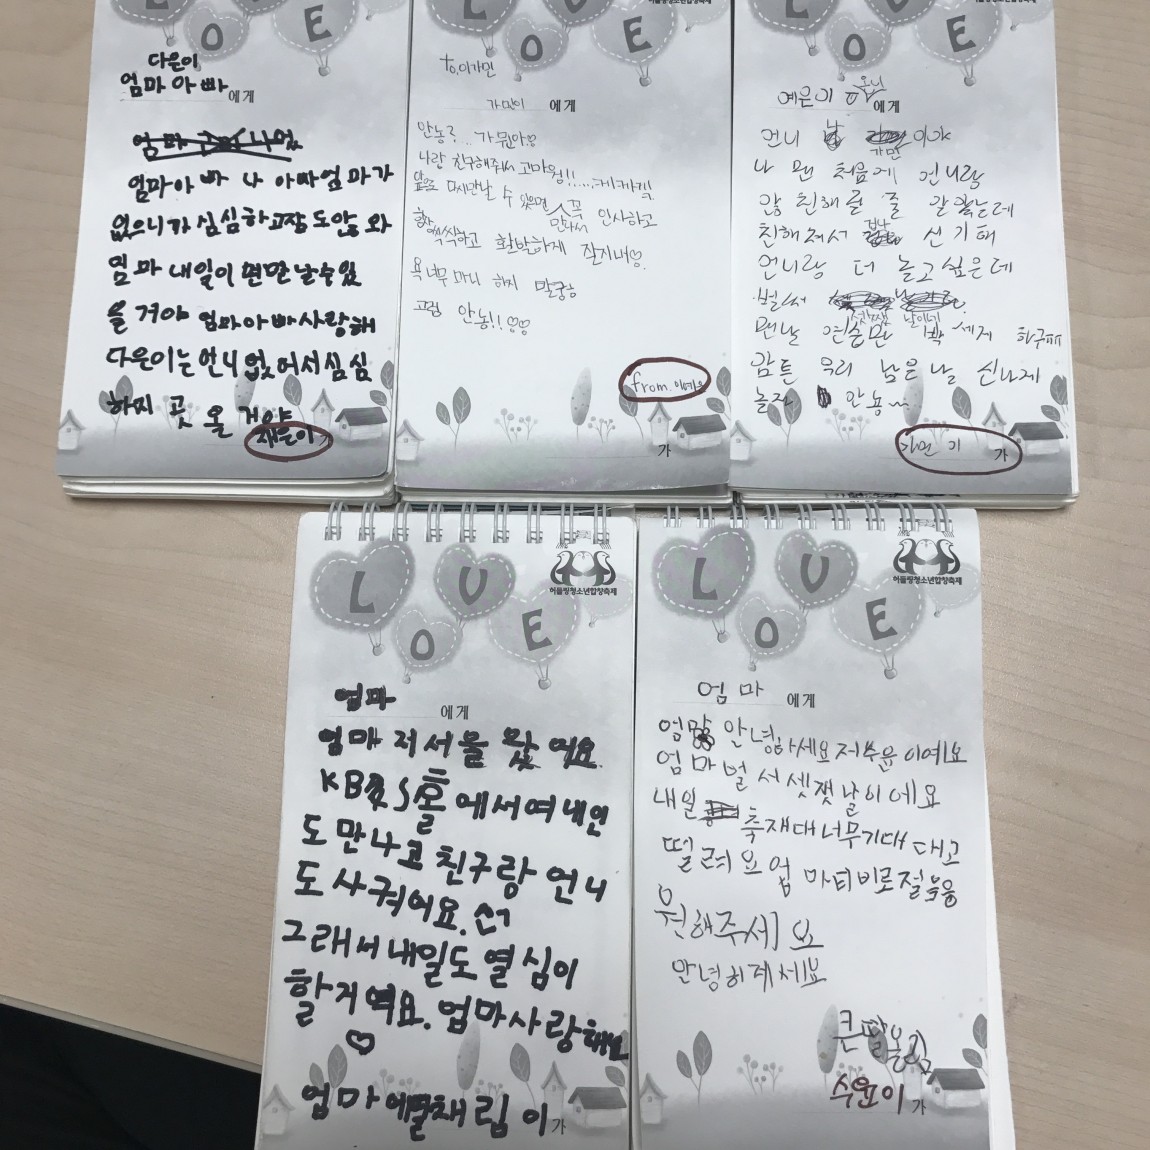 L V
O E
다은이
엄마 아빠
에게
엄마아빠 나 아빠엄마가
없으니가 심심하고잠도않와
엄마 내일이면만날수있
을거야 엄마아빠사랑해
다은이는언니없어서심심
하찌 곳 올 거야
재은이
L V
O E
to.이가민
가민이 에게
안농?..가뮌아♡
나랑 친구해줘서 고마웡!!.....케케케긱
앞으로 다시만날 수 있으면 꼭 만나서 인사하고
항상 씩씩하고 활발하게 잘지내♡.
욕 너무 마니 하지 말궁
그럼 안농!!♡♡
from.이예은
가
L V
O E
어울림청소년합창축제
예은이 언니
에게
언니 나 가민 이야
나 맨 처음에 언니랑
않 친해질 줄 알았는데
친해져서 겁나 신기해
언니랑 더 놀고싶은데
벌써 셋째 날이네
맨날 연습만 빡세게 하구
암튼 우리 남은날 신나게
놀자 안뇽~
가민 기 가
L V
O E
어울림청소년합창축제
엄마
에게
엄마 저서울 왔어요.
KBS홀에서여내인
도만나고친구랑언니
도사귀어요.
그래서내일도열심이
할거여요.엄마사랑해요
♡
엄마에딸채림이가
L V
O E
어울림청소년합창축제
엄마
에게
엄마 안녕하세요저수윤이예요
엄마벌서셋쨋날이에요
내일 축재대너무기대대고
떨려요엄마티비로절응
원해주세요
안녕히게세요
큰딸올림
수윤이가